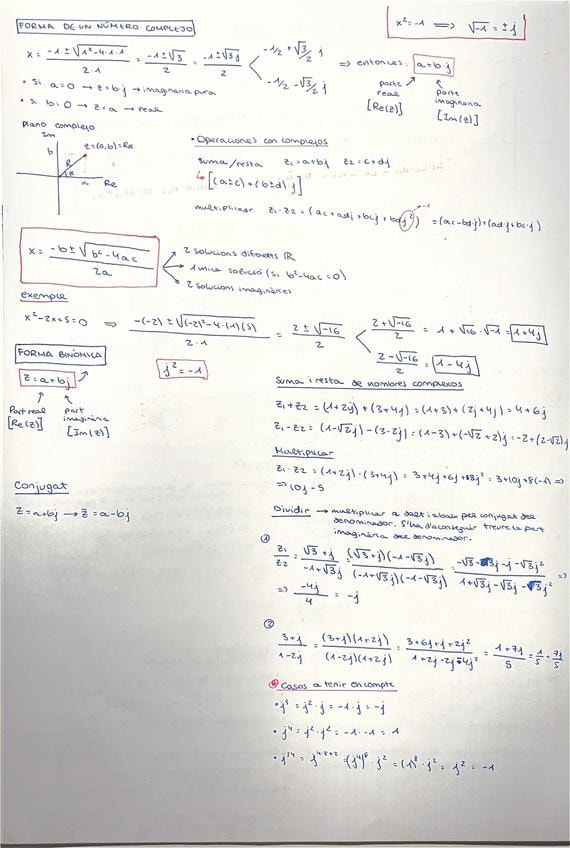 FORMA DE UN NÚMERO COMPLEJO
x² = -1 ⟹ √-1 = ± j
x = (-1 ± √(1²-4·1·1))/(2·1) = (-1 ± √3)/2 = (-1 ± √3 j)/2 < -1/2 + √3/2 j
-1/2 - √3/2 j
⇒ entonces: a+b·j
parte real [Re(z)]
parte imaginaria [Im(z)]
• Si a=0 → z=bj → imaginaria pura
• si b=0 → z=a → real
plano complejo
Im
b
R
z=(a,b)=Rα
α
a
Re
• Operaciones con complejos
suma/resta z₁=a+bj z₂=c+dj
↳ [(a±c)+(b±d)j]
multiplicar z₁·z₂ = (ac+adj+bcj+bdj²) = (ac-bd)+(ad·j+bc·j)
-1
x = (-b ± √(b²-4ac))/2a
2 solucions diferents ℝ
1 única solució (si b²-4ac=0)
2 solucions imaginàries
exemple
x²-2x+5=0 ⇒ (-(-2) ± √((-2)²-4·(1)(5)))/(2·1) = (2 ± √-16)/2
(2+√-16)/2 = 1 + √16 · √-1 = 1+4j
(2-√-16)/2 = 1-4j
FORMA BINÒMICA
j² = -1
z=a+bj
Part real [Re(z)]
part imaginària [Im(z)]
Suma i resta de nombres complexos
z₁+z₂ = (1+2j)+(3+4j) = (1+3)+(2j+4j) = 4+6j
z₁-z₂ = (1-√2j)-(3-2j) = (1-3)+(-√2+2)j = -2+(2-√2)j
Multiplicar
z₁·z₂ = (1+2j)·(3+4j) = 3+4j+6j+8j² = 3+10j+8(-1) ⇒
⇒ 10j-5
Conjugat
z=a+bj → z̄=a-bj
Dividir → multiplicar a dalt i a baix pel conjugat del
denominador. S'ha d'aconseguir treure la part
imaginària del denominador.
①
z₁/z₂ = (√3+j)/(-1+√3j) = ((√3+j)(-1-√3j))/((-1+√3j)(-1-√3j)) = (-√3-3j-j-√3j²)/(1+√3j-√3j-3j²) ⇒
⇒ -4j/4 = -j
②
(3+j)/(1-2j) = ((3+j)(1+2j))/((1-2j)(1+2j)) = (3+6j+j+2j²)/(1+2j-2j-4j²) = (1+7j)/5 = 1/5 + 7j/5
Casos a tenir en compte
• j³ = j²·j = -1·j = -j
• j⁴ = j²·j² = -1·-1 = 1